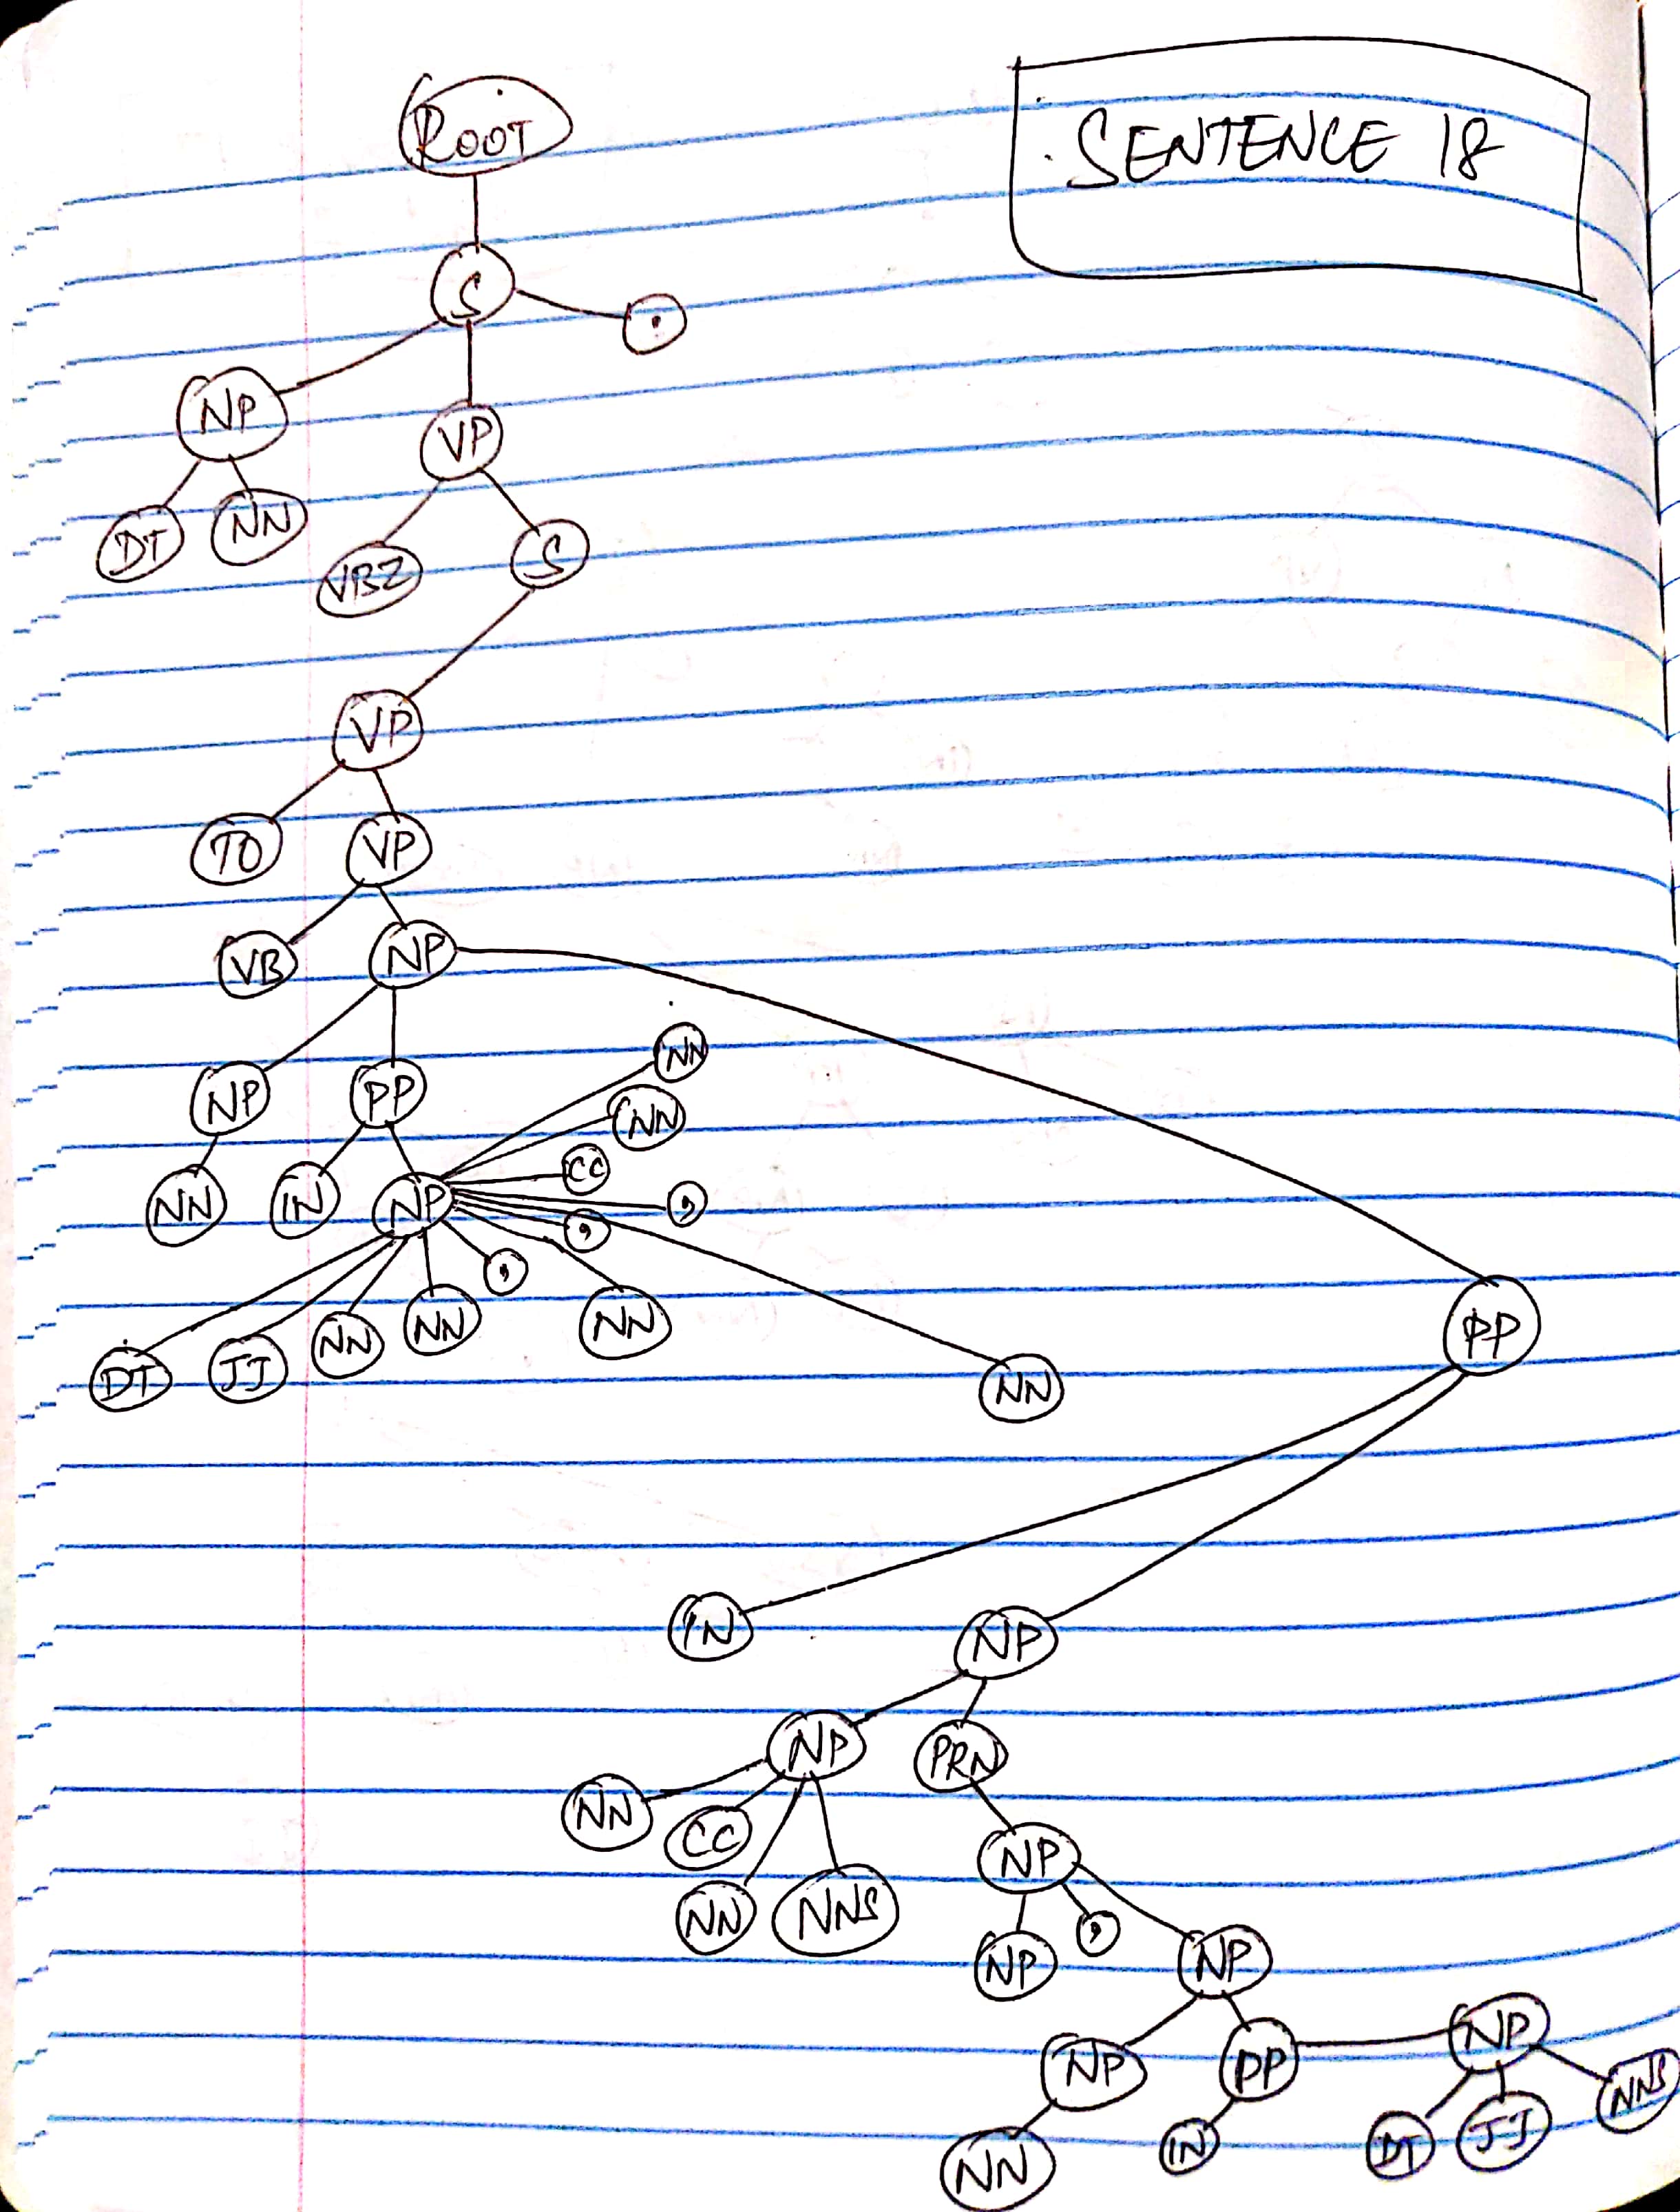 ROOT
SENTENCE 18
S
.
NP
VP
DT
NN
VBZ
S
VP
TO
VP
VB
NP
NP
PP
NN
NN
CC
NN
IN
NP
,
,
,
DT
JJ
NN
NN
NN
NN
PP
IN
NP
NP
PRN
NN
CC
NN
NNS
NP
NP
,
NP
NP
PP
NP
NN
IN
DT
JJ
NNS